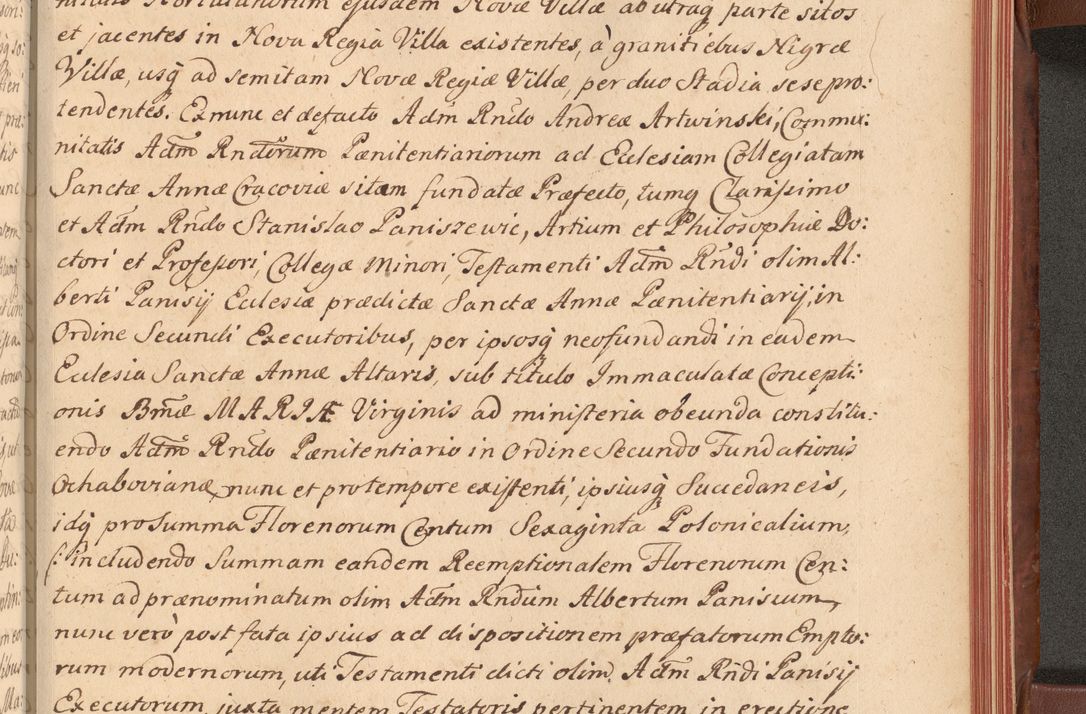 Hortulanorum ejusdem Novæ Villæ ab utraq parte sitos
et jacentes in Nova Regia Villa existentes, à granitiebus Nigræ
Villæ, usq ad semitam Novæ Regiæ Villæ, per duo Stadia sese pro:
tendentes. Ex nunc et defacto Adm Rndo Andreæ Artwinski, Commu:
nitatis Adm Rndorum Pænitentiariorum ad Eclesiam Collegiatam
Sanctæ Annæ Cracoviæ sitam fundatæ Præfecto, tumq Clarissimo
et Adm Rndo Stanislao Paniszewic, Artium et Philosophiæ Do:
ctori et Professori, Collegæ Minori, Testamenti Adm Rndi olim Al:
berti Panisij Eclesiæ prædictæ Sanctæ Annæ Pænitentiarij, in
Ordine Secundi Executoribus, per ipsosq neofundandi in eadem
Eclesia Sanctæ Annæ Altaris, sub titulo Immaculatæ Concepti:
onis Bmæ MARIÆ Virginis ad ministeria obeunda constitu:
endo Adm Rndo Pænitentiario in Ordine Secundo Fundationis
Ochabovianæ, nunc et pro tempore existenti, ipsiusq Succedaneis,
idq pro Summa Florenorum Centum Sexaginta Polonicalium,
(: includendo Summam eandem Reemptionalem Florenorum Cen:
tum ad prænominatum olim Adm Rndum Albertum Panisium,
nunc verò post fata ipsius ad dispositionem præfatorum Empto:
rum modernorum, uti Testamenti dicti olim Adm Rndi Panisij
Executorum, juxta mentem Testatoris pertinentem in erectione